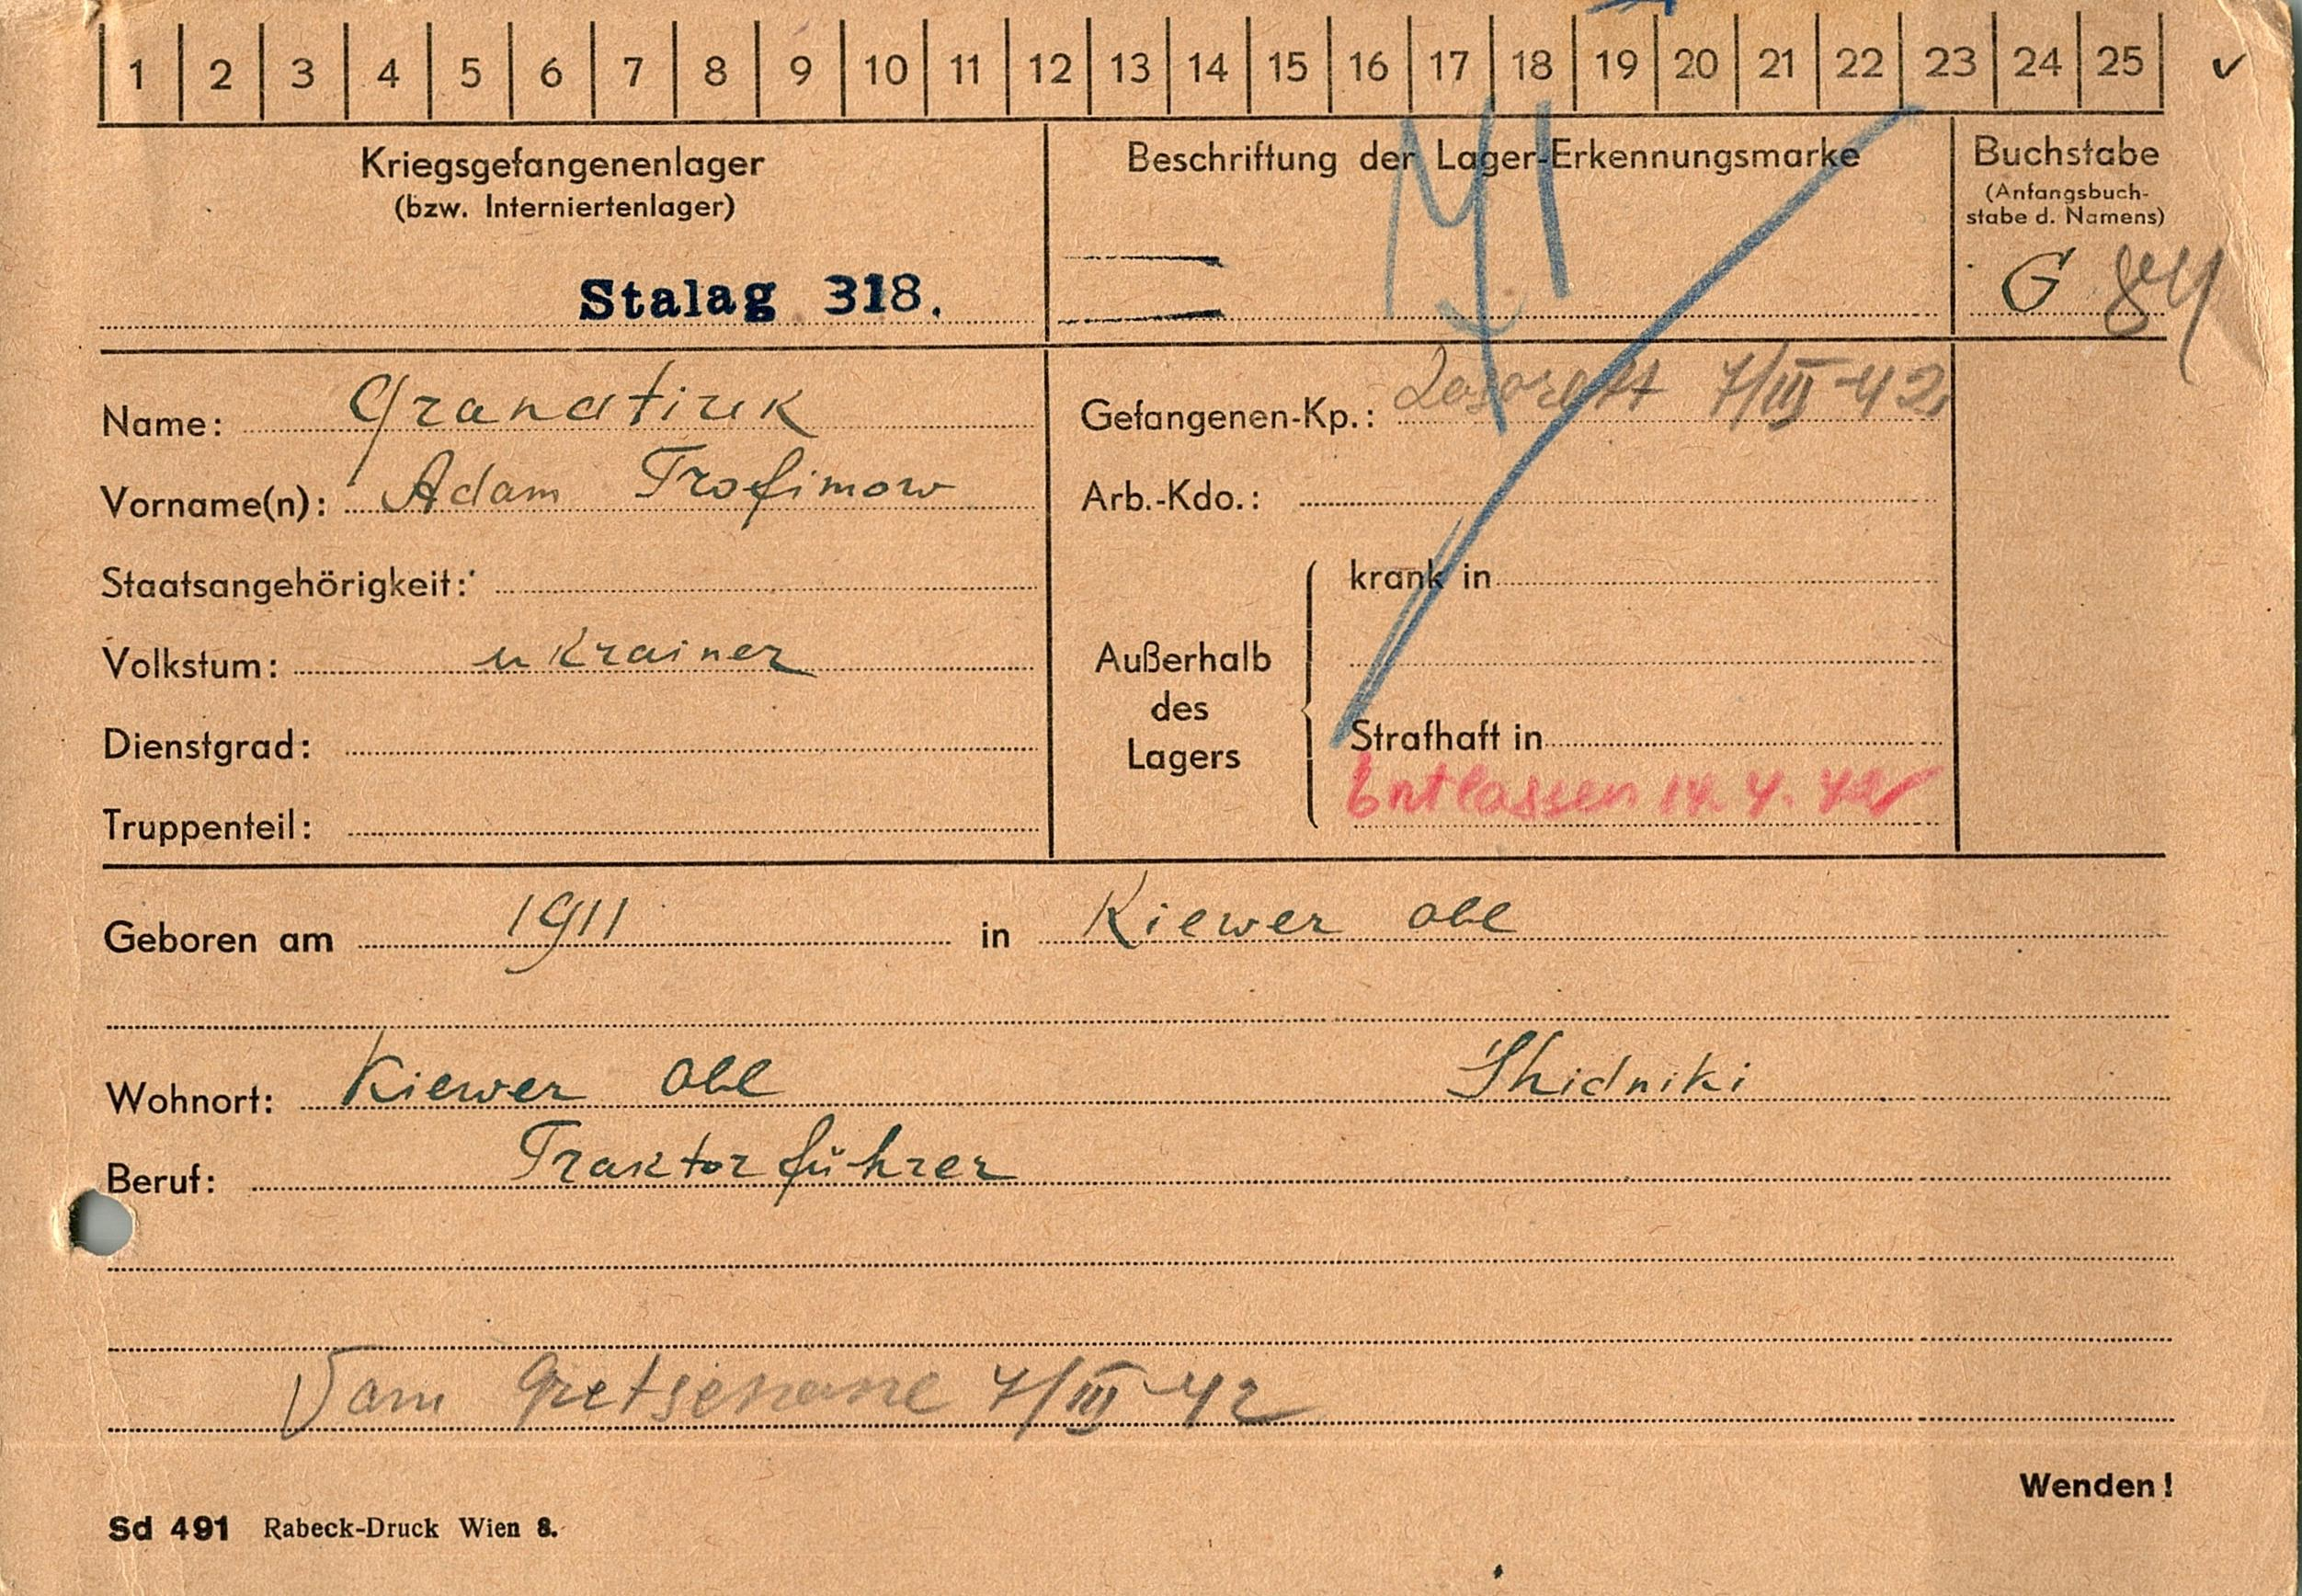 1 2 3 4 5 6 7 8 9 10 11 12 13 14 15 16 17 18 19 20 21 22 23 24 25
Kriegsgefangenenlager
(bzw. Interniertenlager)
Stalag 318.
Beschriftung der Lager-Erkennungsmarke
Buchstabe
(Anfangsbuch-
stabe d. Namens)
G 84
Name: Granatirek
Vorname(n): Adam Trofimow
Staatsangehörigkeit:
Volkstum: ukrainer
Dienstgrad:
Truppenteil:
Gefangenen-Kp.: Lasarett 7/III-42
Arb.-Kdo.:
Außerhalb
des
Lagers
krank in
Strafhaft in
Entlassen 14. 4. 42
Geboren am 1911 in Kiewer obl
Wohnort: Kiewer obl Shidniki
Beruf: Traktorführer
7/III-42
Wenden!
Sd 491 Rabeck-Druck Wien 8.